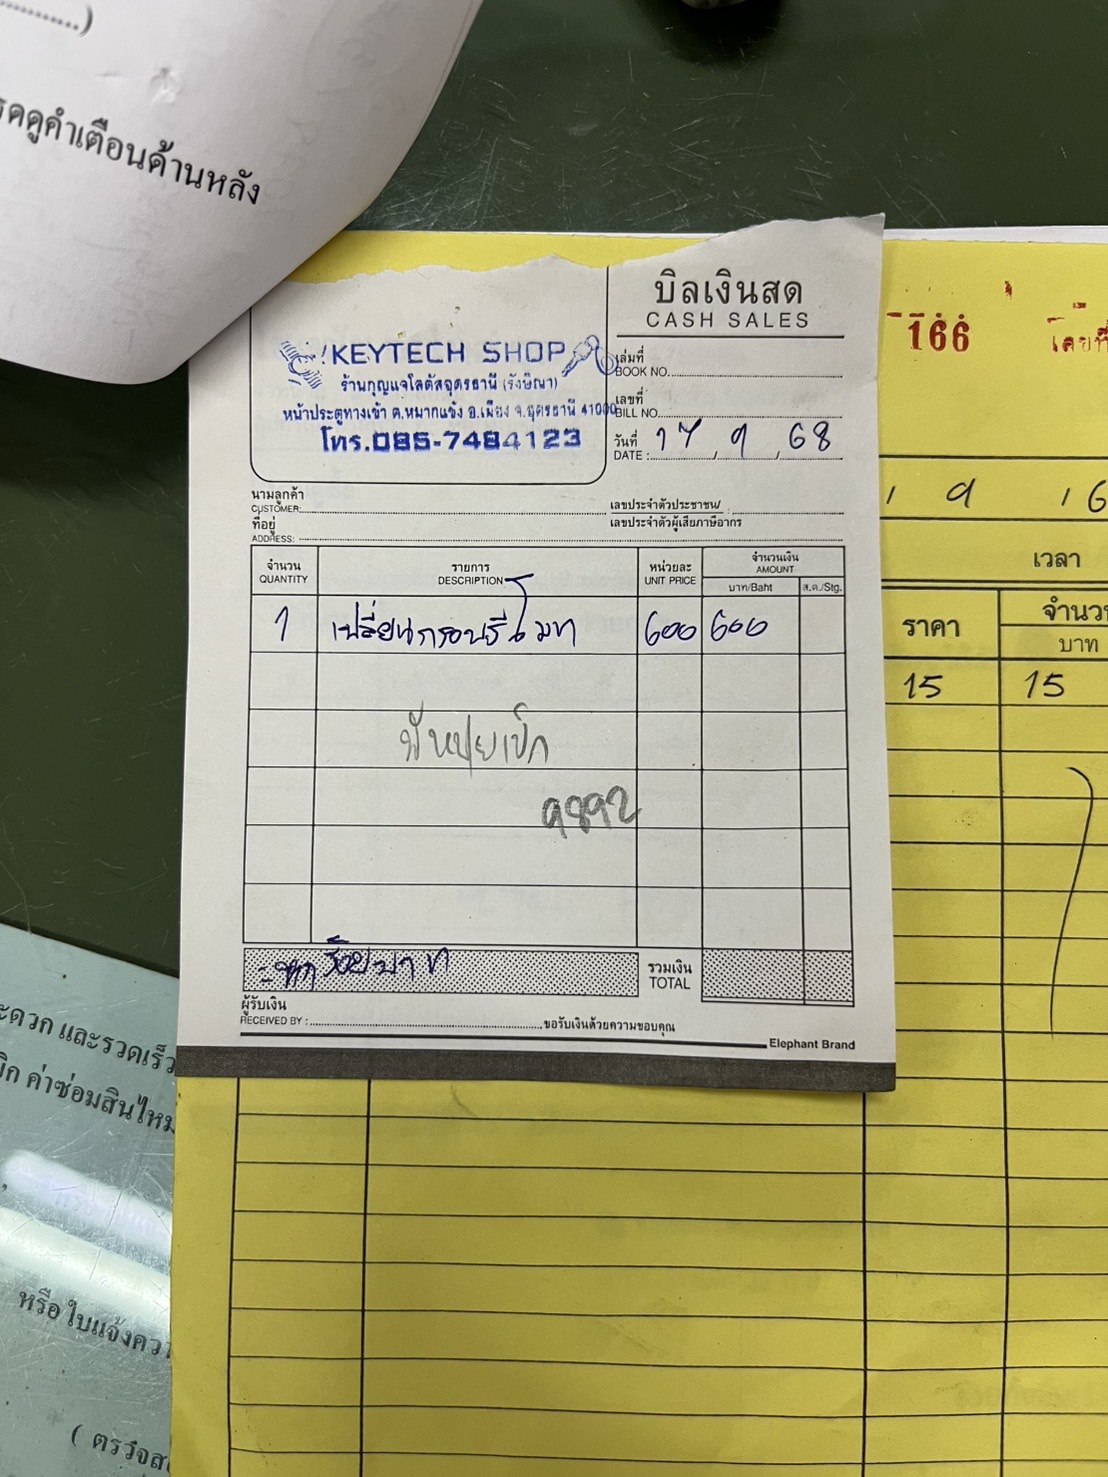 ...............)
รดดูคำเตือนด้านหลัง
บิลเงินสด
CASH SALES
KEYTECH SHOP
ร้านกุญแจโลตัสอุดรธานี (รังษิณา)
หน้าประตูทางเข้า ต.หมากแข้ง อ.เมือง จ.อุดรธานี 41000
โทร.085-7484123
เล่มที่
BOOK NO.
เลขที่
BILL NO.
วันที่ 17 9 68
DATE :
นามลูกค้า
CUSTOMER:
เลขประจำตัวประชาชน/ :
เลขประจำตัวผู้เสียภาษีอากร
ที่อยู่
ADDRESS:
จำนวน รายการ หน่วยละ จำนวนเงิน
QUANTITY DESCRIPTION UNIT PRICE AMOUNT
บาท/Baht ส.ต./Stg.
1 เปลี่ยนกรอบรีโมท 600 600
9892
หกร้อยบาท
รวมเงิน
TOTAL
ผู้รับเงิน
RECEIVED BY : ขอรับเงินด้วยความขอบคุณ
Elephant Brand
166 เลขที่
9
เวลา
ราคา จำนวน
บาท
15 15
ะดวก และรวดเร็ว
ค่าซ่อมสินไหม
หรือ ใบแจ้งควา
( ตรวจส